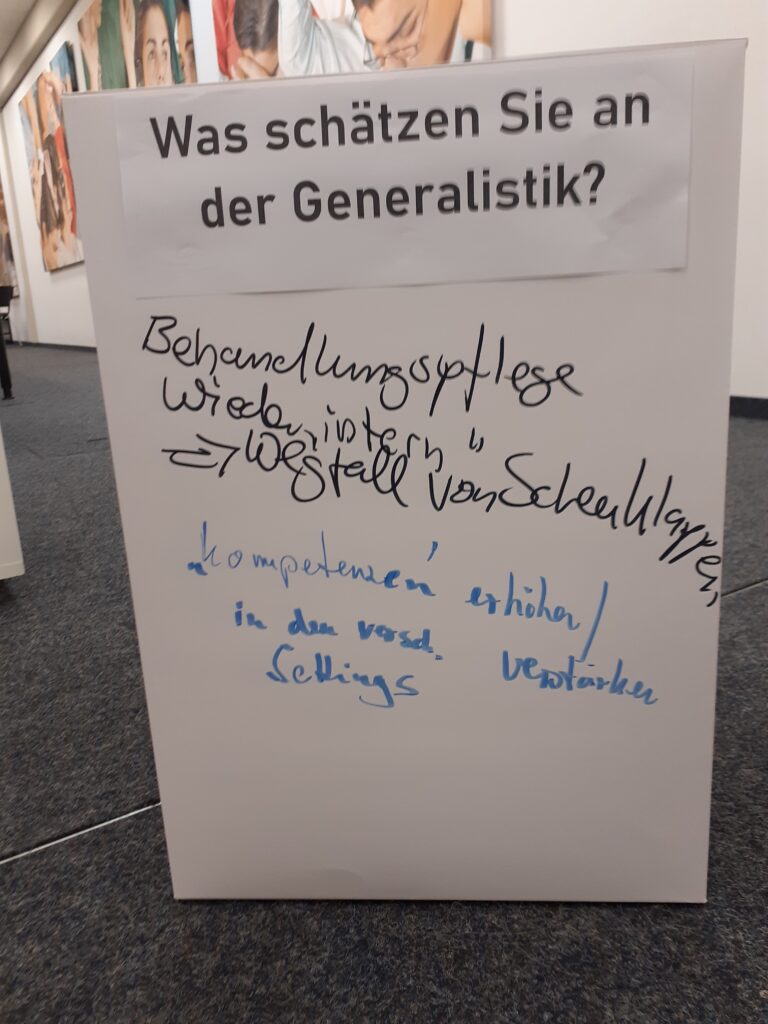 Was schätzen Sie an
der Generalistik?
Behandlungspflege
wieder „intern"
=> Wegfall von Scheuklappen
„kompetenzen' erhöhen/
in den versch. verstärken
Settings